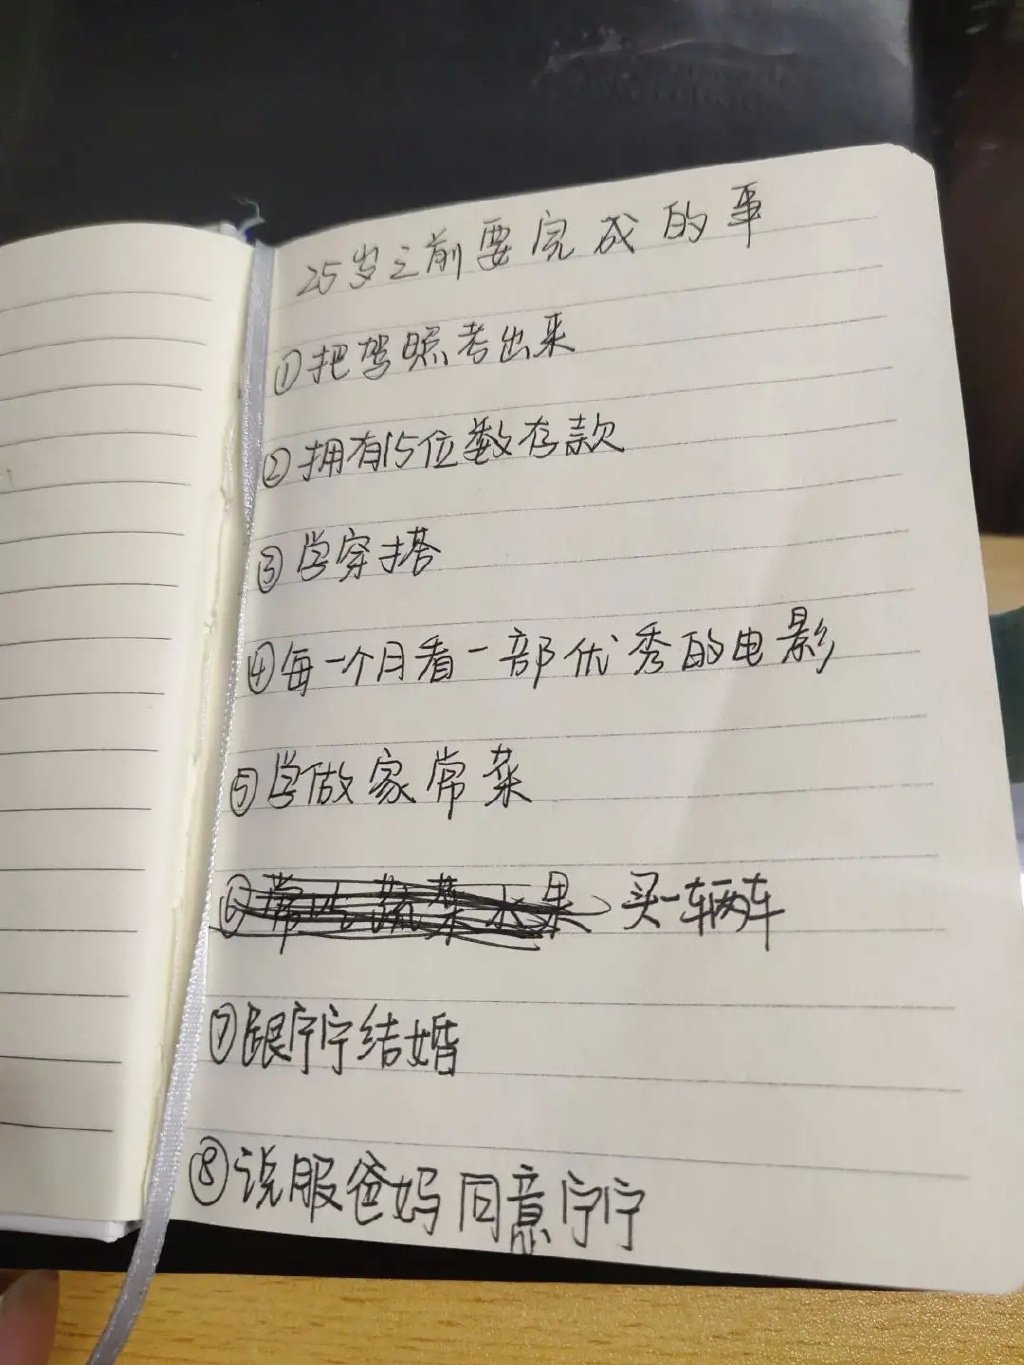 25岁之前要完成的事
①把驾照考出来
②拥有15位数存款
③学穿搭
④每一个月看一部优秀的电影
⑤学做家常菜
⑥常吃蔬菜水果、买一辆车
⑦跟宁宁结婚
⑧说服爸妈同意宁宁